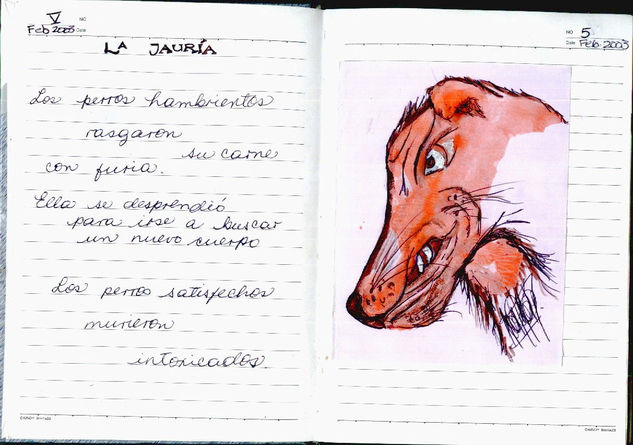 V
NO
Feb 2003 Date
LA JAURÍA
Los perros hambrientos
rasgaron
su carne
con furia.
Ella se desprendió
para irse a buscar
un nuevo cuerpo
Los perros satisfechos
murieron
intoxicados.
NO 5
Date Feb. 2003